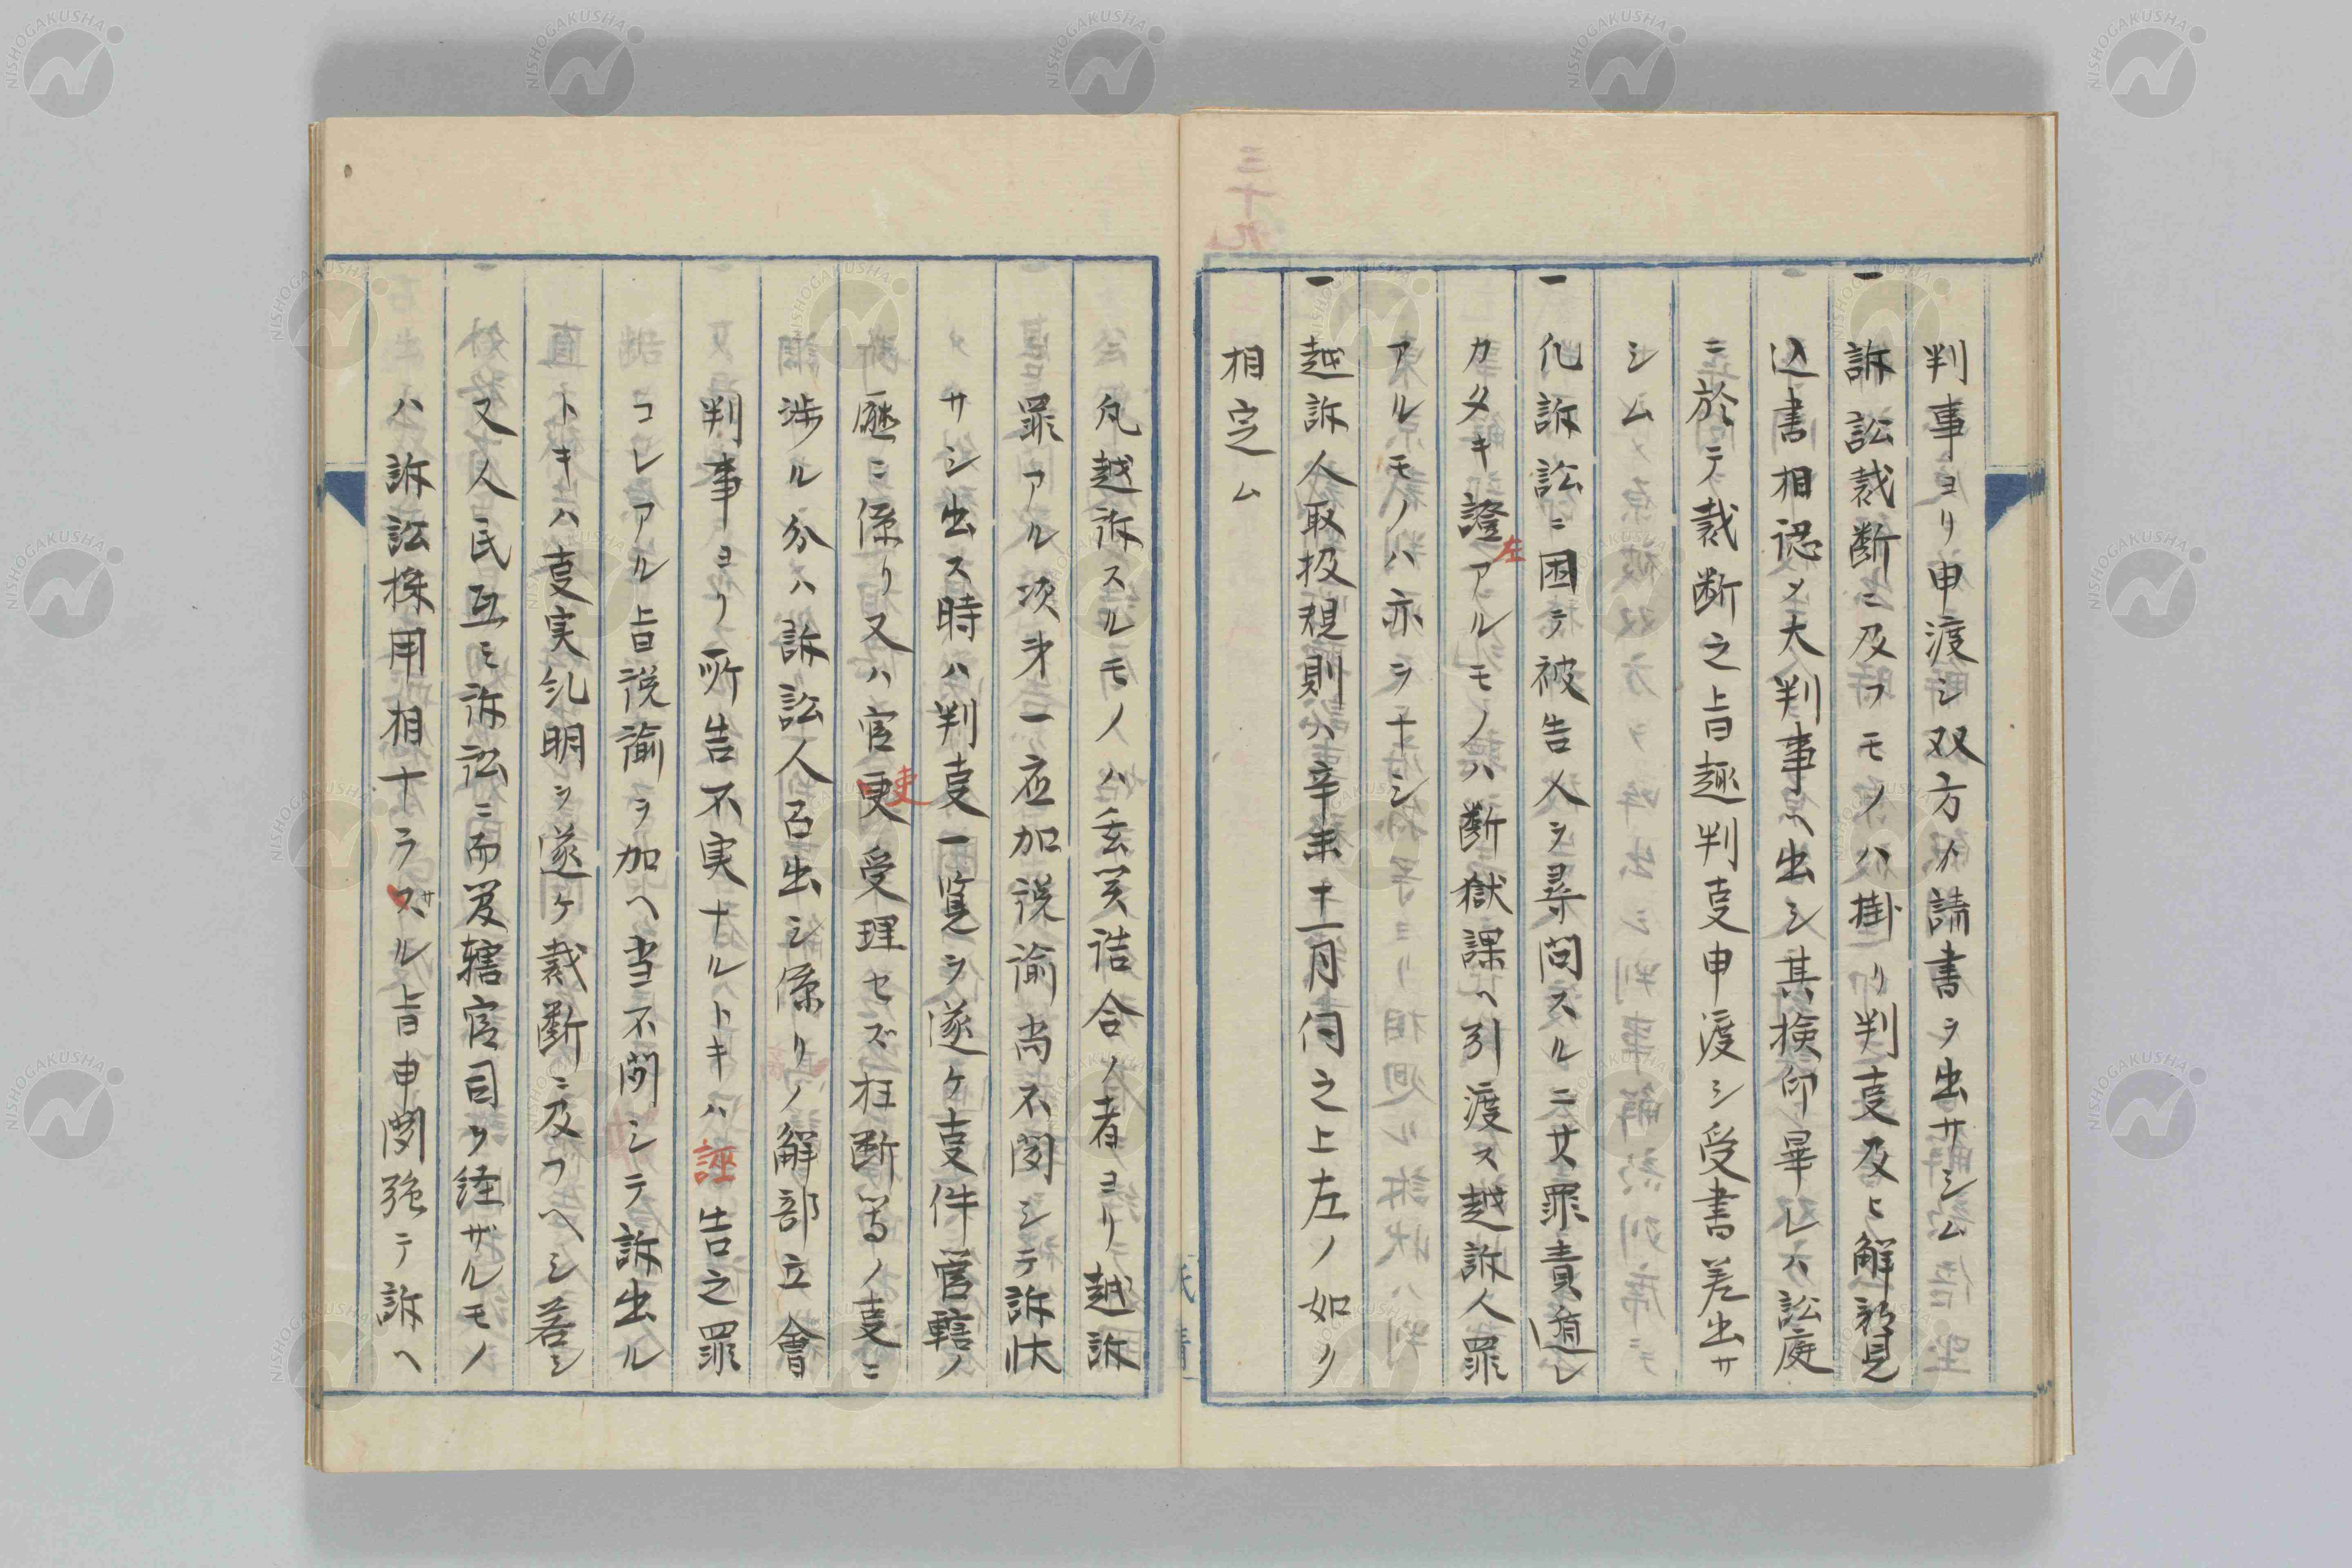 判事ヨリ申渡シ双方ノ請書ヲ出サシム
一訴訟裁断ニ及フモノハ掛リ判㕝及ヒ解部見
込書相認メ大判事ヘ出シ其検印畢レハ訟庭
ニ於テ裁断之旨趣判㕝申渡シ受書差出サ
シム
一化訴訟ニ困テ被告人ヲ尋問スルニ其罪責遁レ
カタキ證左アルモノハ断獄課ヘ引渡ス越訴人罪
アルモノハ亦ヲナシ
一越訴人取扱規則ハ辛未十一月伺之上左ノ如ク
相定ム
凡越訴スルモノハ玄関詰合ノ者ヨリ越訴
罪アル次第一応加説諭尚不聞シテ訴状
サシ出ス時ハ判㕝一覧ヲ遂ケ㕝件管轄ノ
廰ニ係リ又ハ官更吏受理セズ枉断等ノ㕝ニ
渉ル分ハ訴訟人召出シ係リノ解部立會
判事ヨリ所告不実ナルトキハ誣告之罪
コレアル旨説諭ヲ加ヘ当不聞シテ訴出ル
トキハ㕝実糺明ヲ遂ケ裁断ニ及フヘシ若シ
又人民互ニ訴訟ニ而管轄官司ヲ経ザルモノ
ハ訴訟採用相ナラスサル旨申聞強テ訴ヘ